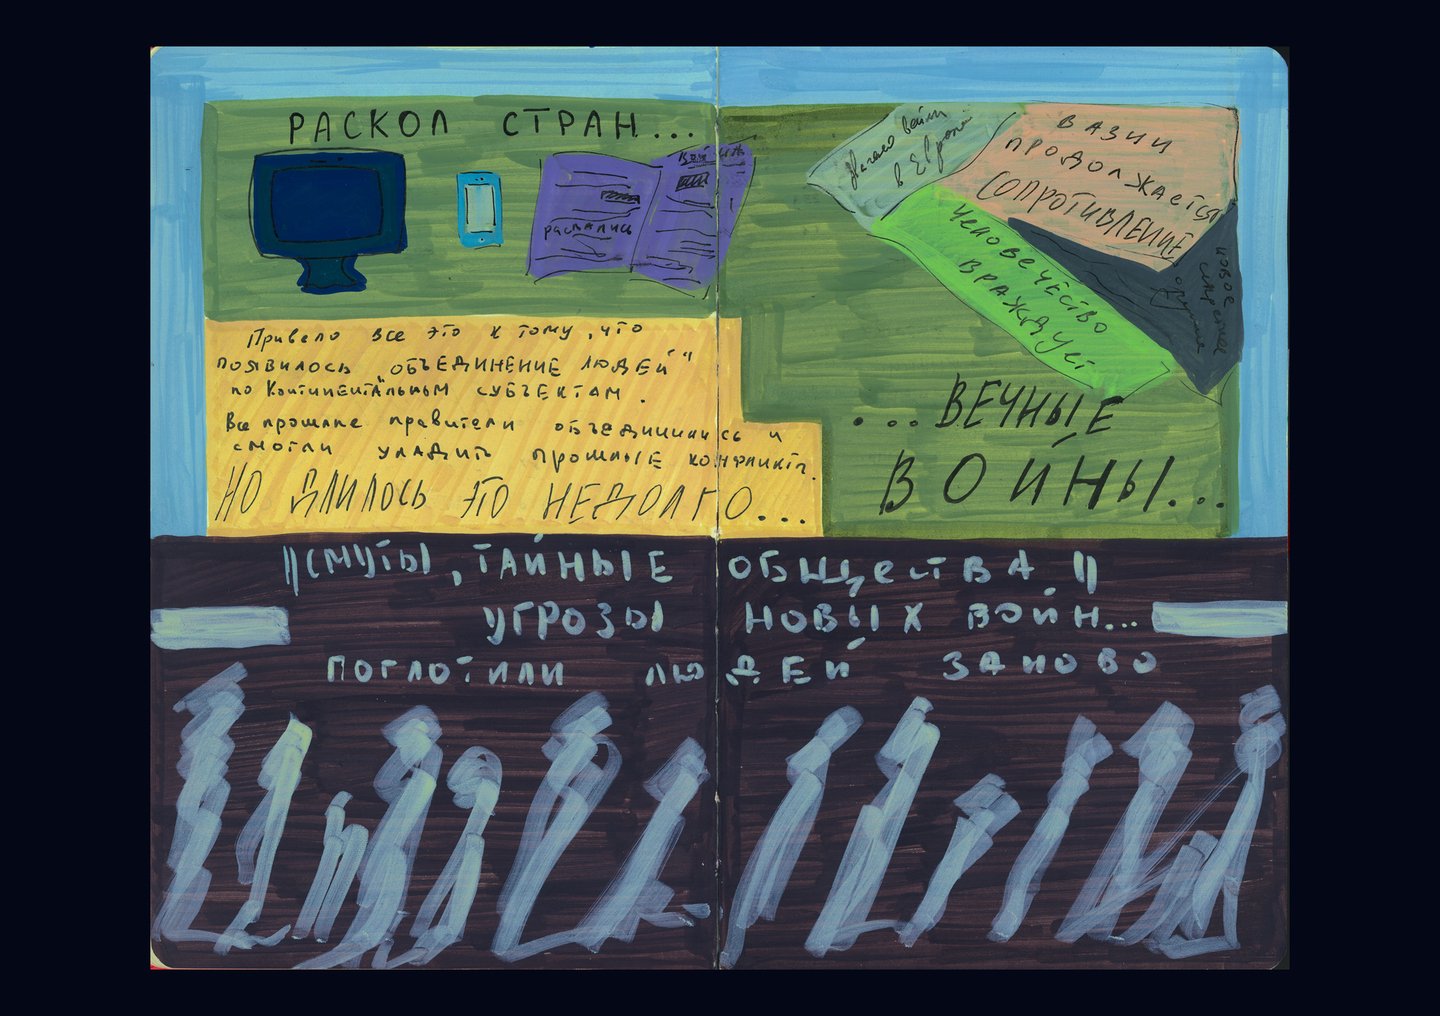 РАСКОЛ СТРАН...
ВОЙНА
РАСПАЛИСЬ
Начало войн
в Европе
В АЗИИ
ПРОДОЛЖАЕТСЯ
СОПРОТИВЛЕНИЕ
ЧЕЛОВЕЧЕСТВО
ВРАЖДУЕТ
НОВОЕ
оружие
...ВЕЧНЫЕ
ВОЙНЫ...
Привело все это к тому, что
появилось "ОБЪЕДИНЕНИЕ ЛЮДЕЙ"
по Континентальным СУБЪЕКТАМ.
Все прошлые правители объединились и
смогли уладить прошлые конфликты.
НО ДЛИЛОСЬ ЭТО НЕДОЛГО...
"СМУТЫ, ТАЙНЫЕ ОБЩЕСТВА"
УГРОЗЫ НОВЫХ ВОЙН...
ПОГЛОТИЛИ ЛЮДЕЙ ЗАНОВО